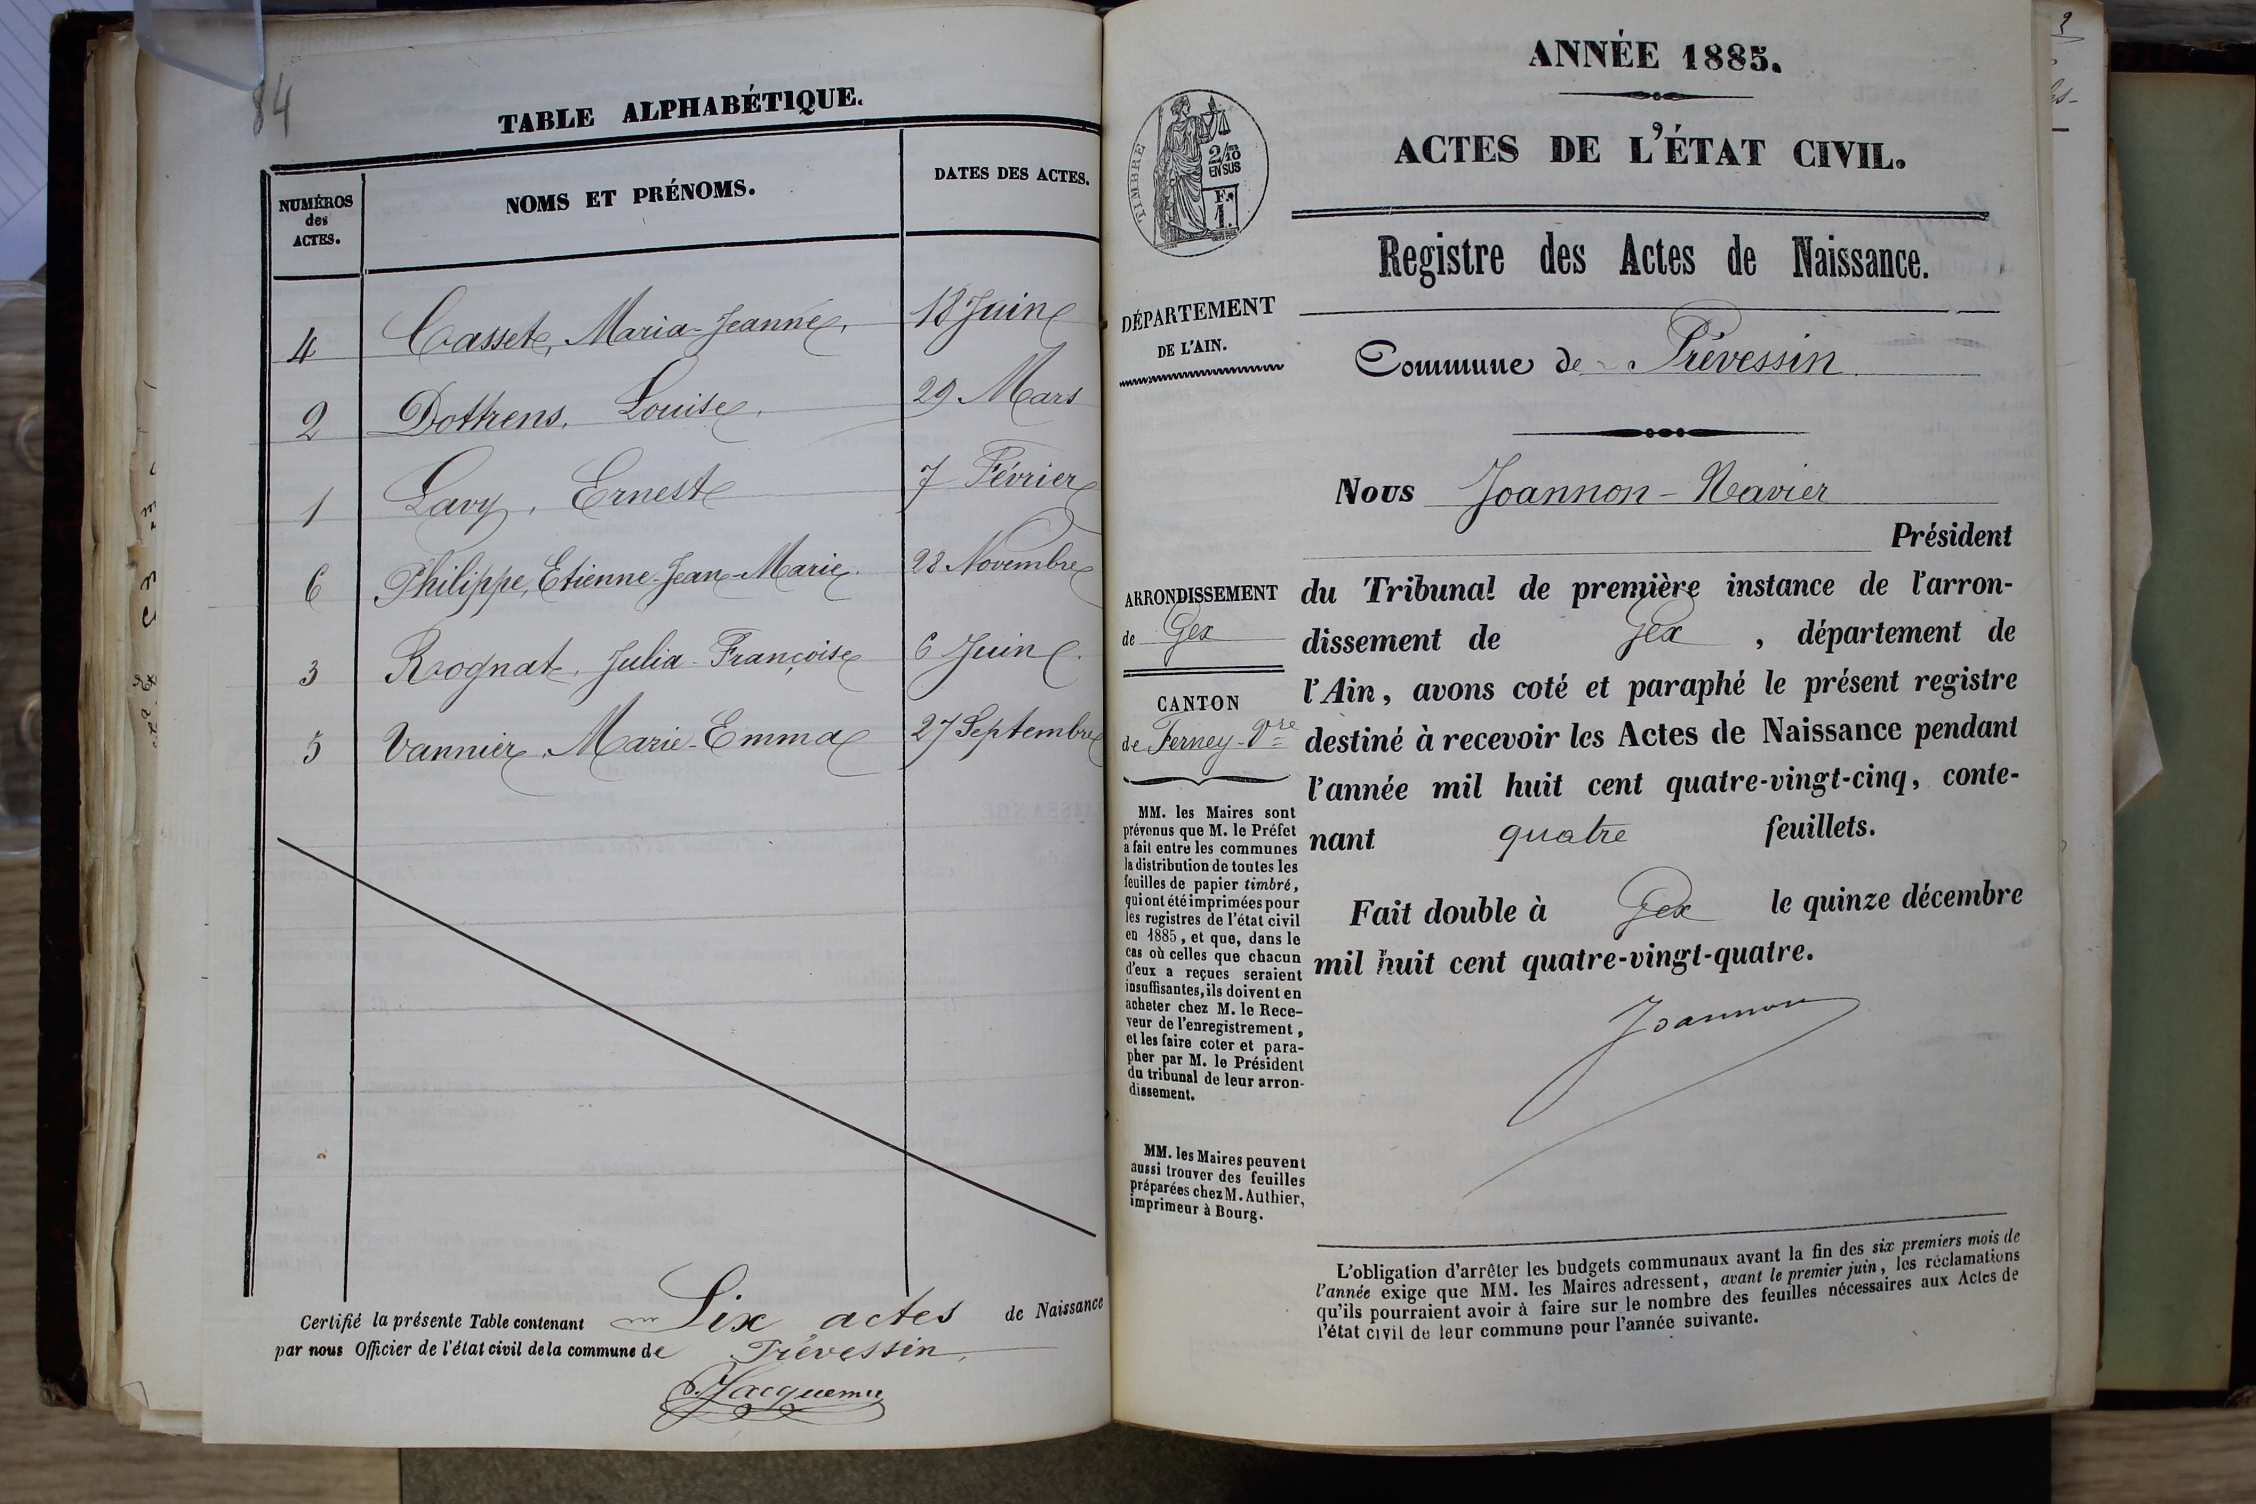 84
TABLE ALPHABÉTIQUE.
NUMÉROS
des
ACTES.
NOMS ET PRÉNOMS.
DATES DES ACTES.
4 Casset, Maria-Jeanne. 18 Juin
2 Dottrens, Louise. 29 Mars
1 Lavy, Ernest 7 Février
6 Philippe, Etienne-Jean-Marie. 28 Novembre
3 Rognat, Julia-Françoise 6 Juin.
5 Vannier, Marie-Emma 27 Septembre
Certifié la présente Table contenant Six actes de Naissance
par nous Officier de l'état civil de la commune de Prévessin.
ANNÉE 1885.
ACTES DE L'ÉTAT CIVIL.
TIMBRE
2/10
EN SUS
F.
1.
Registre des Actes de Naissance.
DÉPARTEMENT
DE L'AIN.
Commune de Prévessin
Nous Joannon-Navier
Président
ARRONDISSEMENT
de Gex
CANTON
de Ferney-Vre
du Tribunal de première instance de l'arron-
dissement de Gex, département de
l'Ain, avons coté et paraphé le présent registre
destiné à recevoir les Actes de Naissance pendant
l'année mil huit cent quatre-vingt-cinq, conte-
nant quatre feuillets.
Fait double à Gex le quinze décembre
mil huit cent quatre-vingt-quatre.
Joannon
MM. les Maires sont
prévenus que M. le Préfet
a fait entre les communes
la distribution de toutes les
feuilles de papier timbré,
qui ont été imprimées pour
les registres de l'état civil
en 1885, et que, dans le
cas où celles que chacun
d'eux a reçues seraient
insuffisantes, ils doivent en
acheter chez M. le Rece-
veur de l'enregistrement,
et les faire coter et para-
pher par M. le Président
du tribunal de leur arron-
dissement.
MM. les Maires peuvent
aussi trouver des feuilles
préparées chez M. Authier,
imprimeur à Bourg.
L'obligation d'arrêter les budgets communaux avant la fin des six premiers mois de
l'année exige que MM. les Maires adressent, avant le premier juin, les réclamations
qu'ils pourraient avoir à faire sur le nombre des feuilles nécessaires aux Actes de
l'état civil de leur commune pour l'année suivante.